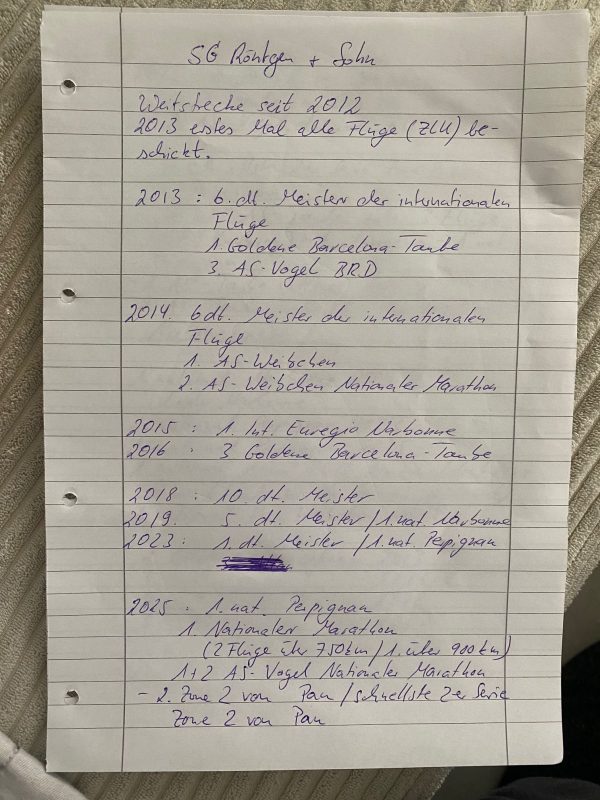 SG Röntgen + Sohn
Weitstrecke seit 2012
2013 erstes Mal alle Flüge (ZLU) be-
schickt.
2013 : 6. dt. Meister der internationalen
Flüge
1. Goldene Barcelona-Taube
3. AS-Vogel BRD
2014. 6 dt. Meister der internationalen
Flüge
1. AS-Weibchen
2. AS-Weibchen Nationaler Marathon
2015 : 1. Int. Euregio Narbonne
2016 : 3 Goldene Barcelona-Taube
2018 : 10. dt. Meister
2019. 5. dt. Meister / 1. nat. Narbonne
2023 : 1. dt. Meister / 1. nat. Perpignan
2025 : 1. nat. Perpignan
1. Nationaler Marathon
(2 Flüge über 750km / 1. über 900km)
1+2 AS-Vogel Nationaler Marathon
- 2. Zone 2 von Pau / schnellste 2er Serie
Zone 2 von Pau